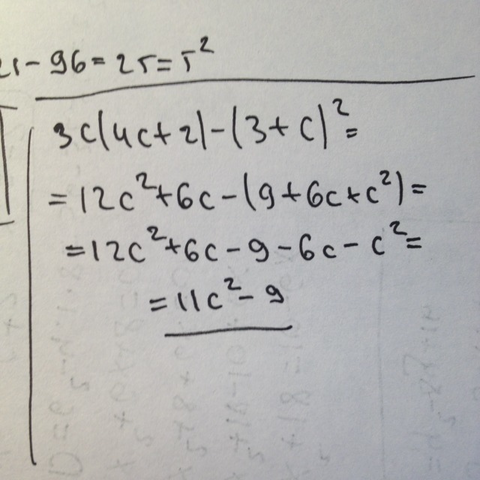 21-96=25=5²
3c(4c+2)-(3+c)²=
=12c²+6c-(9+6c+c²)=
=12c²+6c-9-6c-c²=
=11c²-9